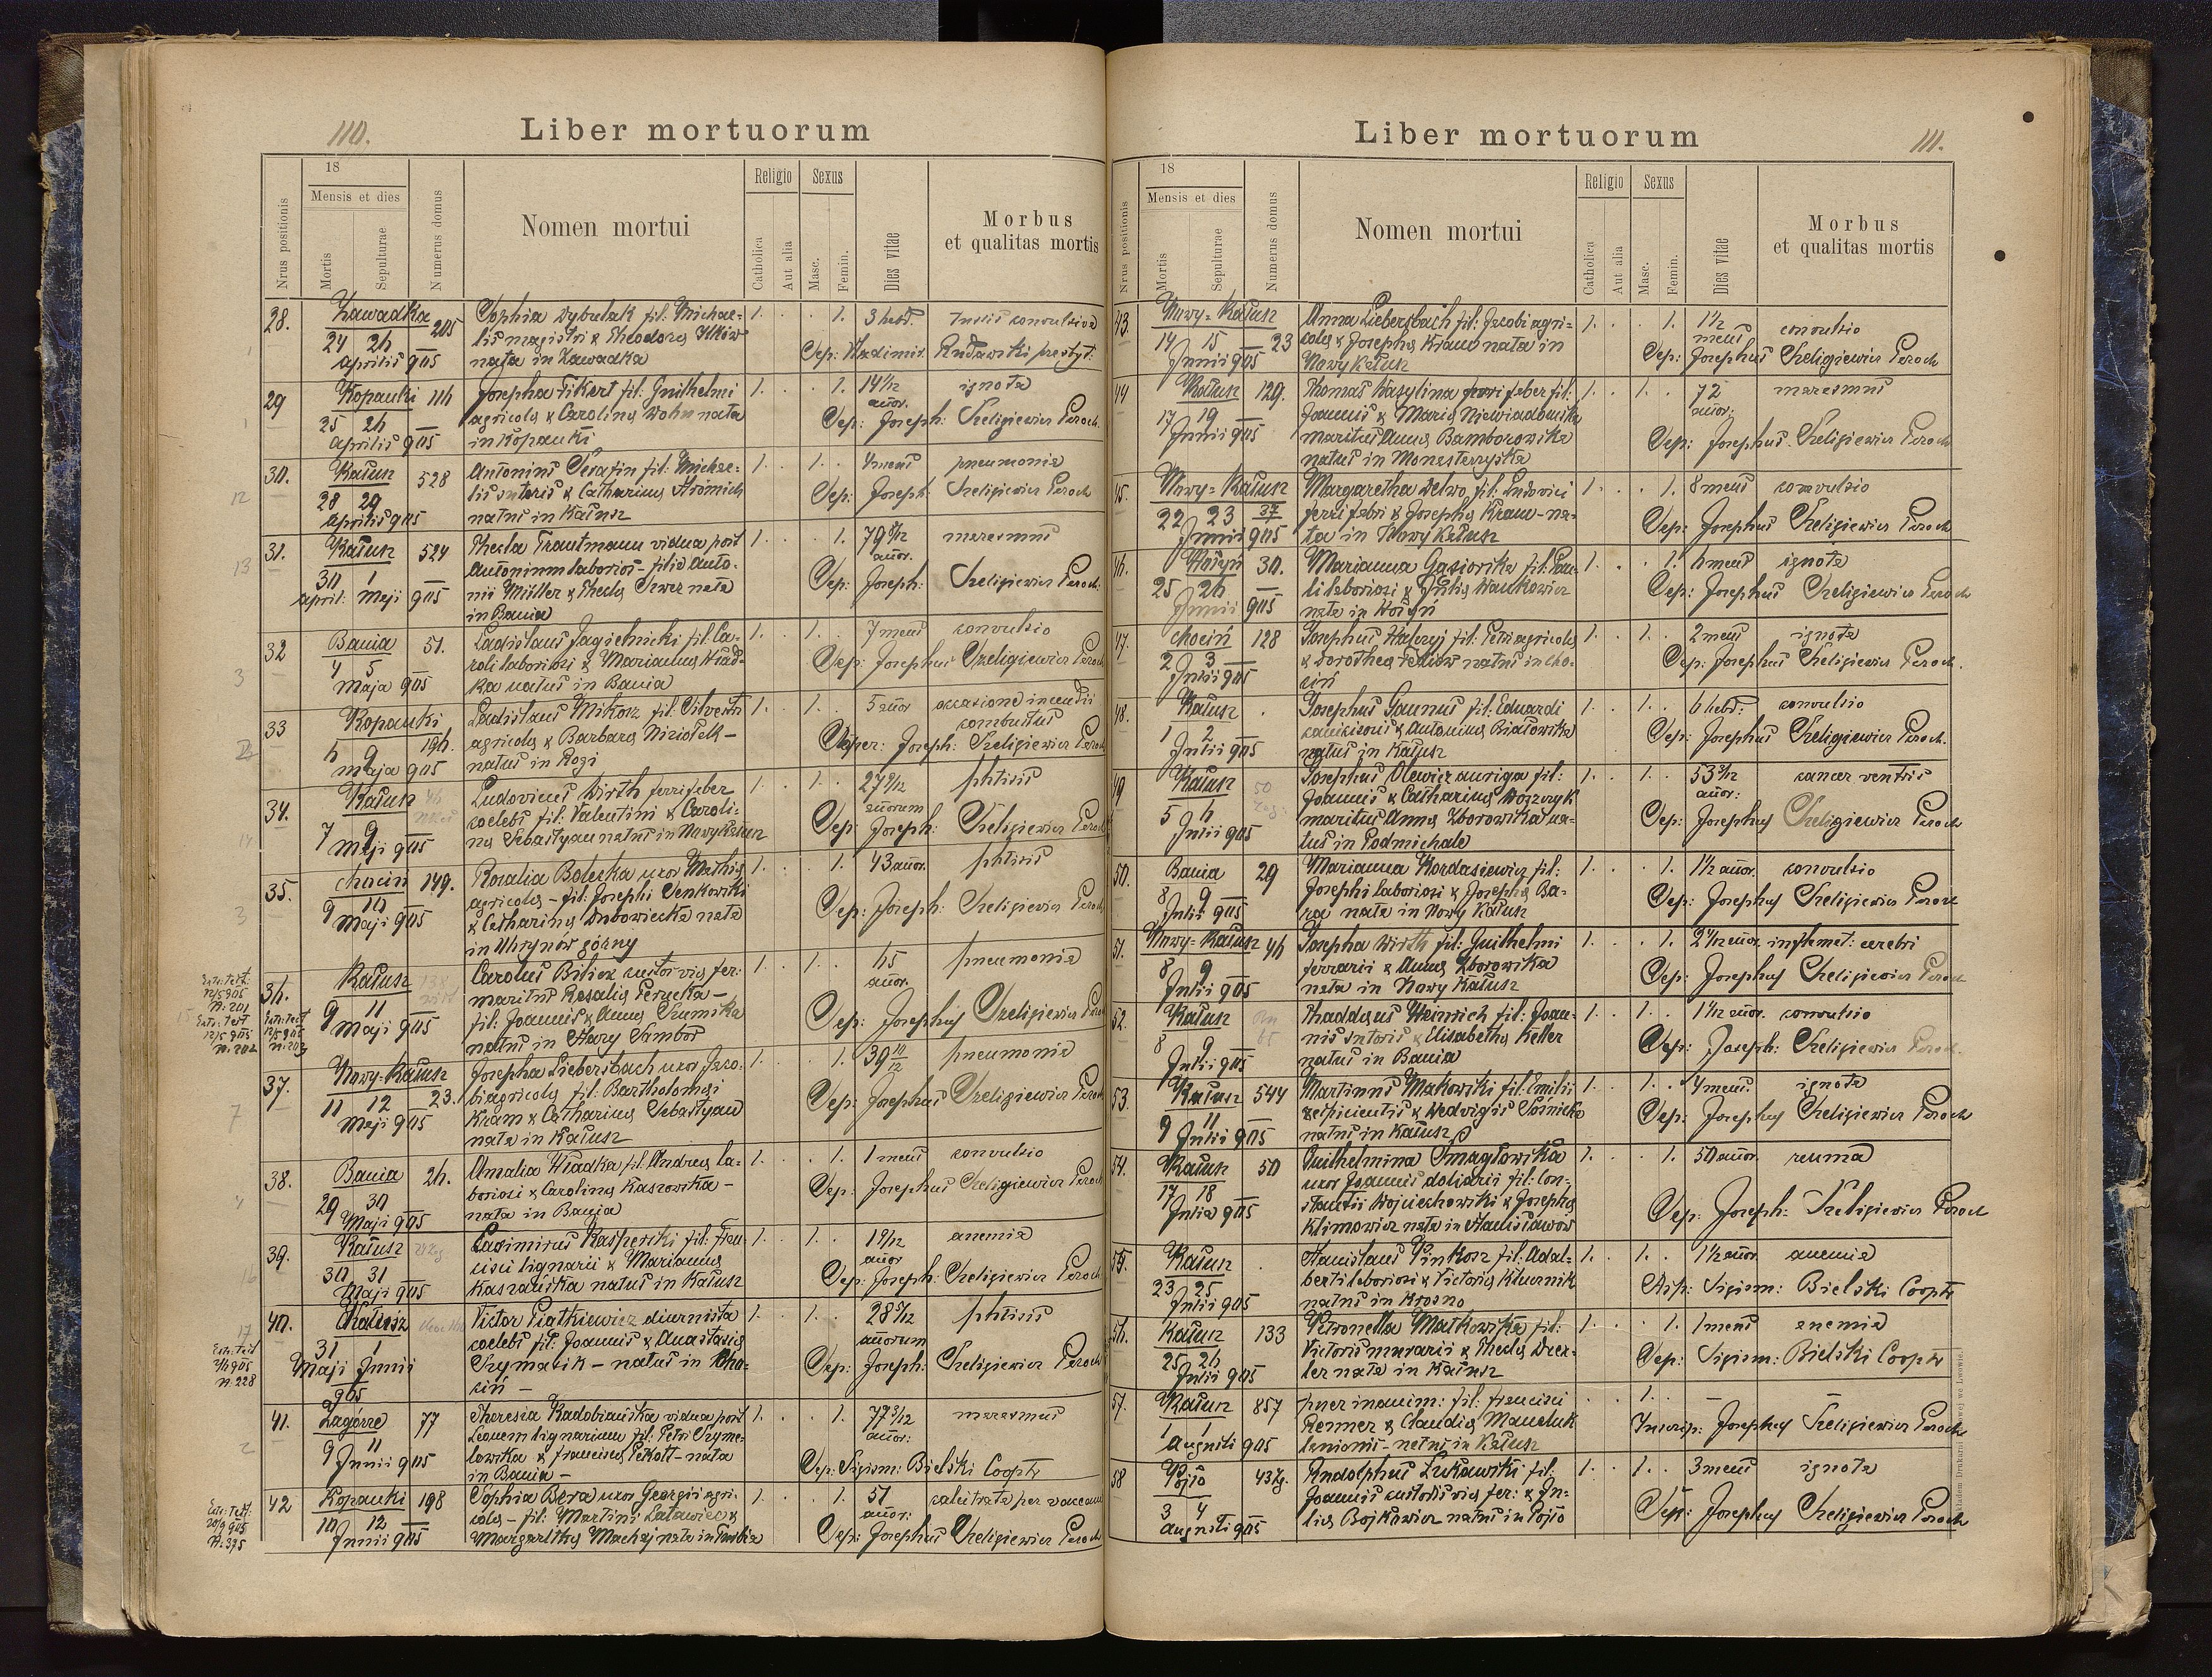 110.
Liber mortuorum
Nrus positionis
18
Mensis et dies
Mortis
Sepulturae
Numerus domus
Nomen mortui
Religio
Catholica
Aut alia
Sexus
Masc.
Femin.
Dies vitae
Morbus
et qualitas mortis
28. Zawadka 205 Sophia Dybulak fil. Michae- 1. 1. 3 hebd. Tussis convulsiva
24 26 lis magistri & Theodorae
Aprilis 905 nata in Zawadka Sep: Wladimir. Rudawski presbyt.
29 Kopanki 116 Josepha Fikert fil. Guilhelmi 1. 1. 14 1/12 ignota
25 26 agricolae & Carolinae Wohn nata añor. Sep: Joseph: Szeligiewicz Paroch
Aprilis 905 in Kopanki
30. Kałusz 528 Antonius Serafin fil: Michae- 1. 1. 4 mens pneumonia
28 29 lis sutoris & Catharinae Sep: Joseph: Szeligiewicz Paroch
Aprilis 905 natus in Kałusz
31. Kałusz 524 Thecla Trautmann vidua post 1. 1. 79 marasmus
30 1 Antonium laborios - filia Anto- añor.
April: Maji 905 nii Müller & Theclae nata Sep: Joseph: Szeligiewicz Paroch
in Bania
32 Bania 51. Ladislaus Jagielnicki fil. Ca- 1. 1. 7 mens convulsio
4 5 roli laboriosi & Mariannae Sep: Josephus Szeligiewicz Paroch
Maja 905 ka natus in Bania
33 Kopanki 196. Ladislaus Mikosz fil. Silvestri 1. 1. 5 añor occasione incendii
6 9 agricolae & Barbarae Niziołek - combustus
Maja 905 natus in Rogi Seper: Joseph: Szeligiewicz Paroch
34. Kałusz Ludovicus Wirth ferrifaber 1. 1. 27 phtisis
7 9 coelebs fil: Valentini & Caroli- añorum
Maji 905 nae Sebastyan natus in Nowy Kałusz Sep: Joseph: Szeligiewicz Paroch
35. Chocin 149. Rosalia Bolecka uxor Mathiae 1. 1. 43 añor. phtisis
9 10 agricolae - fil: Josephi Senkowski
Maji 905 & Catharinae Dubowiecka nata Sep: Joseph: Szeligiewicz Paroch
in Uhrynów górny
36. Kałusz Carolus custos viae fer: 1. 1. 65 pneumonia
9 11 maritus Rosaliae Perucka - añor.
Maji 905 fil: Joannis & Annae Szumska Sep: Josephus Szeligiewicz Paroch
natus in Stary Sambor
37. Nowy-Kałusz 23. Josepha Liebersbach uxor Jaco- 1. 1. 39 10/12 pneumonia
11 12 bi agricolae fil: Bartholomaei
Maji 905 Kram & Catharinae Sebastyan Sep: Josephus Szeligiewicz Paroch
nata in Kałusz
38. Bania 26. Amalia Hładka fil: Andreae la- 1. 1. 1 mens convulsio
29 30 boriosi & Carolinae Kaszowska - Sep: Josephus Szeligiewicz Paroch
Maji 905 nata in Bania
39. Kałusz Casimirus Kasperski fil: Fran- 1. 1. 1 anemia
30 31 cisci lignarii & Mariannae añor
Maji 905 Kaszańska natus in Kałusz Sep: Joseph: Szeligiewicz Paroch
40. Kałusz Victor Piatkiewicz diurnista 1. 1. 28 phtisis
31 1 coelebs fil: Joannis & Anastasiae añorum
Maji Junii Szymasik - natus in Cho- Sep: Joseph: Szeligiewicz Paroch
905 cin -
41. Zagórze 77 Theresia Radobiańska vidua post 1. 1. 77 marasmus
9 11 Leonem lignarium fil: Petri Szyme- añor:
Junii 905 lowska & Franciscae Petkoff - nata Sep: Sigism: Bielski Coopr
in Bania -
42 Kopanki 198 Sophia Bera uxor Georgii agri- 1. 1. 51 calcitrata per vaccam
10 12 colae - fil: Martini Latawiec & añor:
Junii 905 Margarithae Machaj nata in Sep: Josephus Szeligiewicz Paroch
111.
Liber mortuorum
Nrus positionis
18
Mensis et dies
Mortis
Sepulturae
Numerus domus
Nomen mortui
Religio
Catholica
Aut alia
Sexus
Masc.
Femin.
Dies vitae
Morbus
et qualitas mortis
43. Nowy-Kałusz 23 Anna Liebersbach fil: Jacobi agri- 1. 1. 1 1/2 convulsio
14 15 colae & Josephae Kram nata in mens
Junii 905 Nowy Kałusz Sep: Josephus Szeligiewicz Paroch
44 Kałusz 129. Thomas Wasylina ferrifaber fil: 1. 1. 72 marasmus
17 19 Joannis & Mariae Niewiadomska añor:
Junii 905 maritus Annae Bamborowska Sep: Josephus Szeligiewicz Paroch
natus in Monasterzyska
45. Nowy-Kałusz 37 Margaretha Delwo fil: Ludovici 1. 1. 8 mens convulsio
22 23 ferrifabri & Josephae Kram - na- Sep: Josephus Szeligiewicz Paroch
Junii 905 ta in Nowy Kałusz
46. 30. Marianna Gąsiorska fil: Pau- 1. 1. 6 mens ignota
25 26 li laboriosi & Juliae Wankowicz Sep: Josephus Szeligiewicz Paroch
Junii 905 nata in
47. Chocin 128 Josephus fil: Petri agricolae 1. 1. 2 mens ignota
2 3 & Dorotheae natus in Cho- Sep: Josephus Szeligiewicz Paroch.
Julii 905 cin
48. Kałusz . Josephus Saunus fil: Eduardi 1. 1. 6 hebd: convulsio
1 2 & Antoninae Białowska Sep: Josephus Szeligiewicz Paroch.
Julii 905 natus in Kałusz
49 Kałusz Josephus Olewicz auriga fil: 1. 1. 53 cancer ventris
5 6 Joannis & Catharinae Woszczyk añor:
Julii 905 maritus Annae Zborowska na- Sep: Josephus Szeligiewicz Paroch
tus in Podmichale
50. Bania 29 Marianna Kordasiewicz fil: 1. 1. 1 1/2 añor. convulsio
8 9 Josephi laboriosi & Josephae Ba- Sep: Josephus Szeligiewicz Paroch
Julii 905 ra nata in Nowy Kałusz
51. Nowy-Kałusz 46 Josepha Wirth fil: Guilhelmi 1. 1. 2 añor. inflamat: cerebri
8 9 ferrarii & Annae Zborowska Sep: Josephus Szeligiewicz Paroch
Julii 905 nata in Nowy Kałusz
52. Kałusz Thaddaeus Heinrich fil: Joan- 1. 1. 1 1/12 añor. convulsio
8 9 nis sutoris & Elisabethae Keller Sep: Joseph: Szeligiewicz Paroch.
Julii 905 natus in Bania
53. Kałusz 544 Martinus Makowski fil: Emilii 1. 1. 4 mens. ignota
9 11 respicientis & Hedvigis Sośnicka Sep: Josephus Szeligiewicz Paroch
Julii 905 natus in Kałusz
54. Kałusz 50 Guilhelmina Smagłowska 1. 1. 50 añor. reuma
17 18 uxor Joannis doliarii fil: Con-
Julia 905 stantii Wojciechowski & Josephae Sep: Joseph: Szeligiewicz Paroch
Klimowicz nata in Stanisławow
55. Kałusz . Stanislaus Pinkosz fil: Adal- 1. 1. 1 1/2 añor. anemia
23 25 berti laboriosi & Victoriae Kluernik Sep: Sigism: Bielski Coopr
Julii 905 natus in Krosno
56. Kałusz 133 Petronella Małkowska fil: 1. 1. 1 mens anemia
25 26 Victoris murarii & Theclae Drex- Sep: Sigism: Bielski Coopr
Julii 905 ler nata in Kałusz
57. Kałusz 857 puer inanim: fil: Francisci 1. - -
1 1 Renner & Claudiae Manaluk Inscrip: Josephus Szeligiewicz Paroch
Augusti 905 lanionis - natus in Kałusz
58 Pojło 437g. Rudolphus Łukawski fil: 1. 1. 3 mens ignota
3 4 Joannis custodis viae fer: & Ju- Sep: Josephus Szeligiewicz Paroch
Augusti 905 liae Bojkowicz natus in Pojło